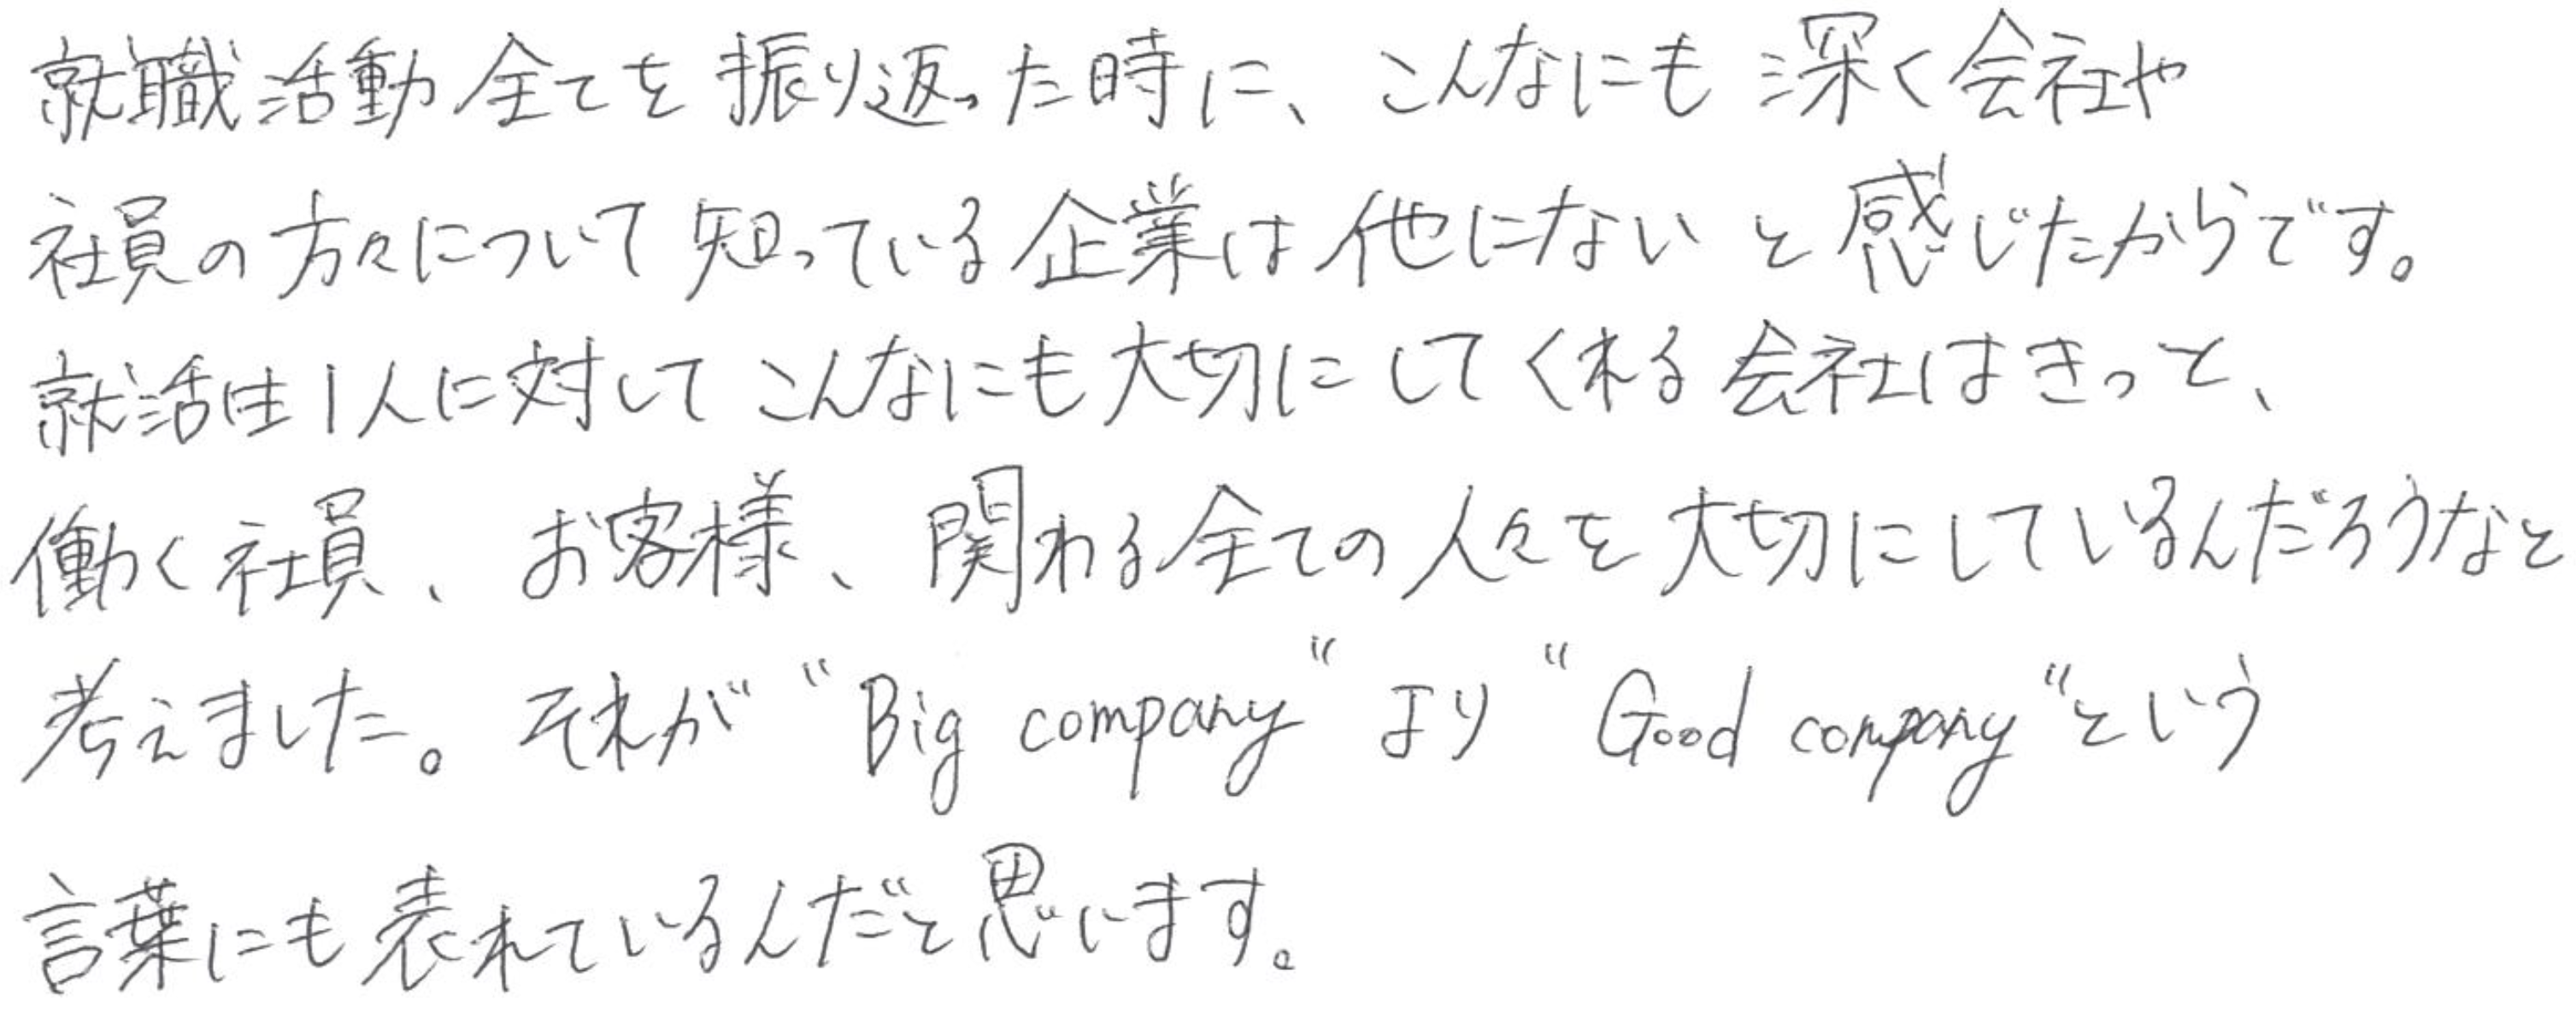 就職活動全てを振り返った時に、こんなにも深く会社や
社員の方々について知っている企業は他にないと感じたからです。
就活生1人に対してこんなにも大切にしてくれる会社はきっと、
働く社員、お客様、関わる全ての人々を大切にしているんだろうなと
考えました。それが“Big company“より“Good company“という
言葉にも表れているんだと思います。